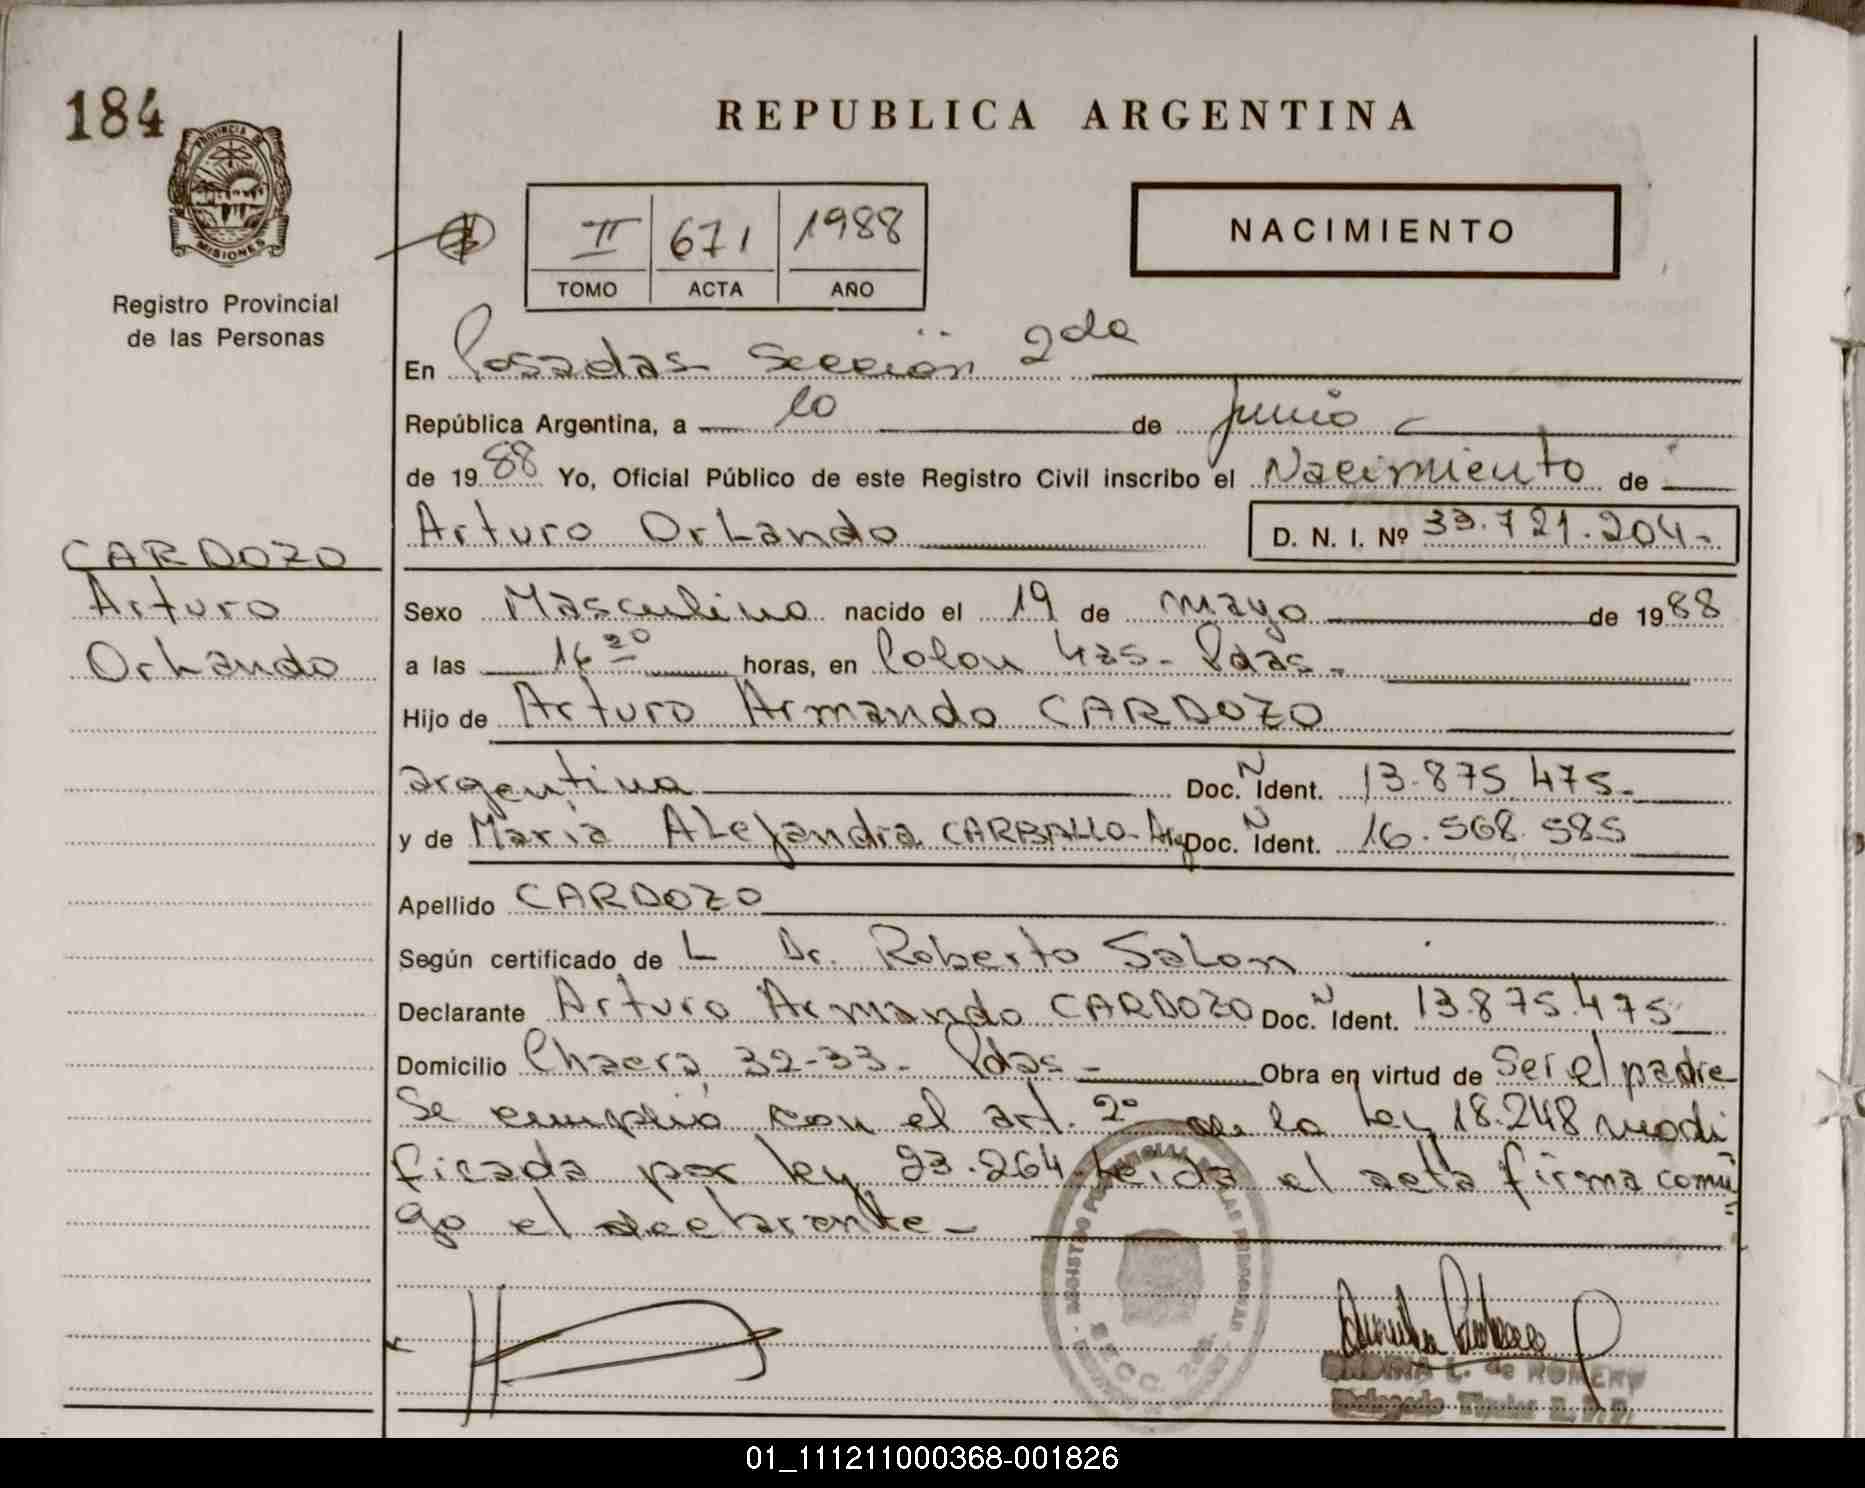 184
REPUBLICA ARGENTINA
PROVINCIA DE
MISIONES
Registro Provincial
de las Personas
II 671 1988
TOMO ACTA AÑO
NACIMIENTO
En Posadas Sección 2da
República Argentina, a 10 de junio
de 1988 Yo, Oficial Público de este Registro Civil inscribo el Nacimiento de
Arturo Orlando D. N. I. Nº 33.721.204.-
CARDOZO
Arturo
Orlando
Sexo Masculino nacido el 19 de mayo de 1988
a las 16 horas, en Colon Pdas.-
Hijo de Arturo Armando CARDOZO
argentina Doc. N Ident. 13.875.475.-
y de María Alejandra CARBALLO- Arg Doc. N Ident. 16.568.585
Apellido CARDOZO
Según certificado de L Dr. Roberto Salom
Declarante Arturo Armando CARDOZO Doc. N Ident. 13.875.475
Domicilio Chacra 32-33- Pdas- Obra en virtud de ser el padre
Se cumplió con el art. 2º de la ley 18.248 modi
ficada por ley 23.264. Leida el acta firma conmi
go el declarante-
REGISTRO PROVINCIAL DE LAS PERSONAS
SECC. 2da.
L. de ROMERO
Delegado Titular R.P.P.
01_111211000368-001826